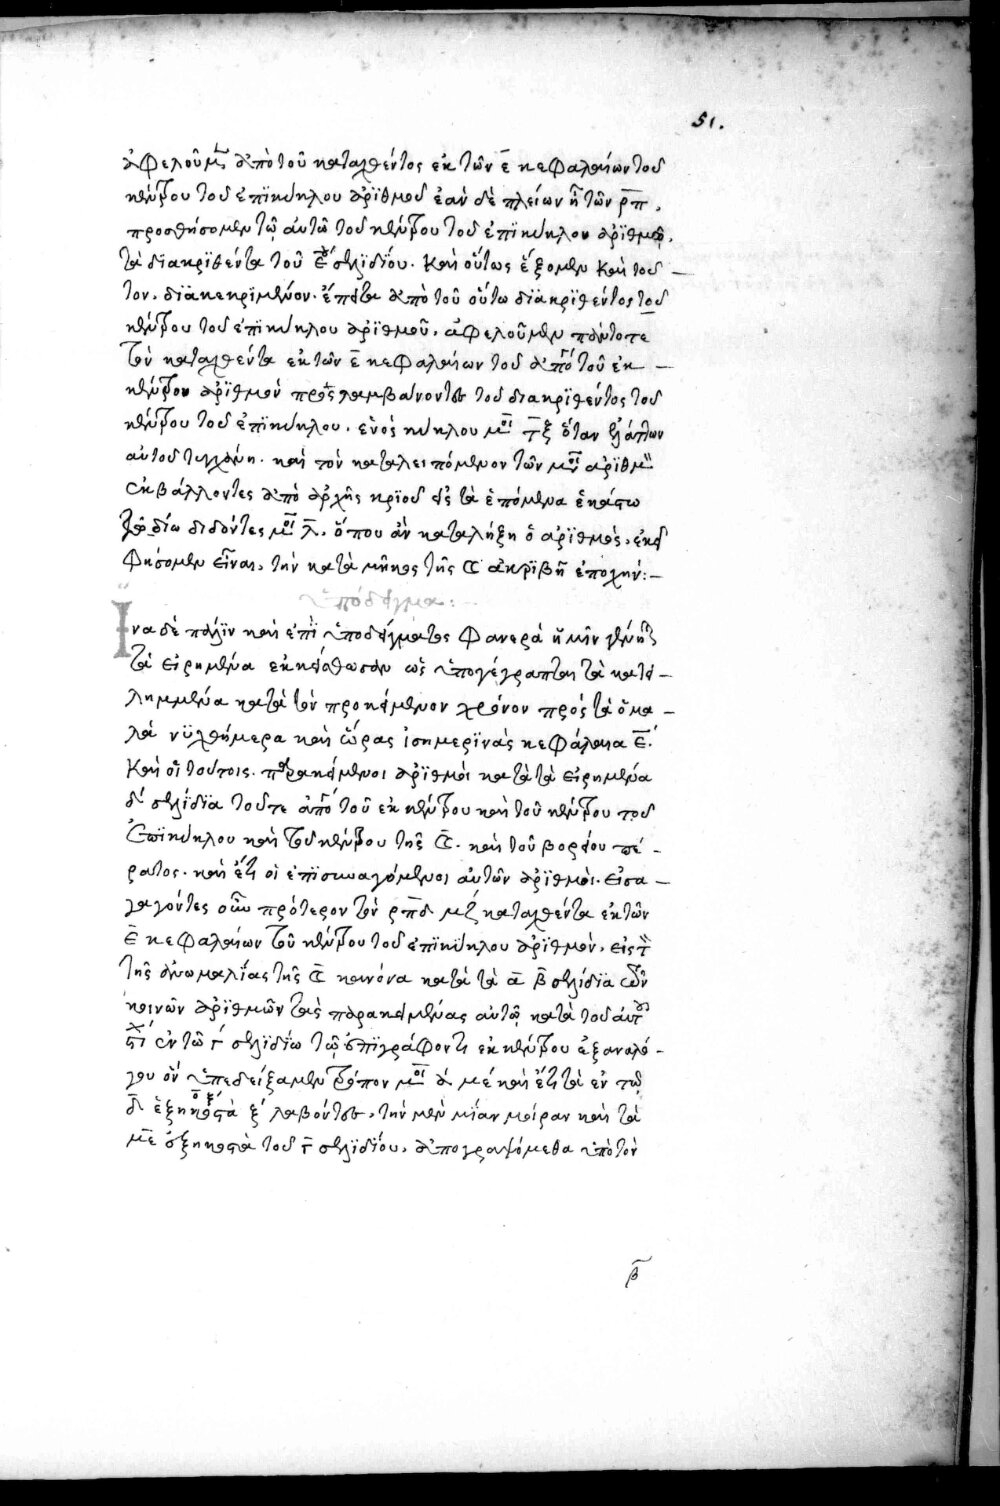 51.
ἀφελοῦμεν ἀπὸ τοῦ καταχθέντος ἐκ τῶν ε̄ κεφαλαίων τοῦ
κέντρου τοῦ ἐπικύκλου ἀριθμοῦ ἐὰν δὲ πλείων ἢ τῶν ρ̄π̄,
προσθήσομεν τῷ αὐτῶ τοῦ κέντρου τοῦ ἐπικύκλου ἀριθμῷ,
τὰ διακριθέντα τοῦ ε̄ σελιδίου. Καὶ οὕτως ἕξομεν καὶ τοῦ –
τον, διακεκριμένον. ἔπειτα ἀπὸ τοῦ οὕτω διακριθέντος τοῦ
κέντρου τοῦ ἐπικύκλου ἀριθμοῦ, ἀφελοῦμεν πάντοτε
τὸν καταχθέντα ἐκ τῶν ε̄ κεφαλαίων τοῦ ἀπὸ τοῦ ἐκ –
κέντρου ἀριθμὸν προσλαμβάνοντες τοῦ διακριθέντος τοῦ
κέντρου τοῦ ἐπικύκλου, ἑνὸς κύκλου μοι τ̄ξ̄ ὅταν ἐλάττων
αὐτοῦ τυγχάνη. καὶ τὸν καταλειπόμενον τῶν μοι ἀριθμὸν
ἐκβάλλοντες ἀπὸ ἀρχῆς κριοῦ εἰς τὰ ἑπόμενα ἑκάστω
ζωδίω διδόντες μοι λ̄, ὅπου ἂν καταλήξη ὁ ἀριθμὸς, ἐκεῖ
φήσομεν εἶναι, τὴν κατὰ μῆκος τῆς ☾ ἀκριβῆ ἐποχήν:–
ὑπόδειγμα:
Ἵνα δὲ πάλιν καὶ ἐπὶ ὑποδείγματος φανερὰ ἡμῖν γένηται
τὰ εἰρημένα ἐκκείσθωσαν ὡς ὑπογέγραπται τὰ κατει –
λημμένα κατὰ τὸν προκείμενον χρόνον πρὸς τὰ ὁμα –
λὰ νυχθήμερα καὶ ὥρας ἰσημερινὰς κεφάλαια ε̄.
Καὶ οἱ τούτοις παρακείμενοι ἀριθμοὶ κατὰ τὰ εἰρημένα
δ́ σελίδια τοῦτε ἀπὸ τοῦ ἐκκέντρου καὶ τοῦ κέντρου τοῦ
ἐπικύκλου καὶ τοῦ κέντρου τῆς ☾. καὶ τοῦ βορείου πέ –
ρατος. καὶ ἔτι οἱ ἐπισυναγόμενοι αὐτῶν ἀριθμοὶ. εἰσα –
γαγόντες οὖν πρότερον τὸν ρ̄π̄δ̄ μζ́ καταχθέντα ἐκ τῶν
ε̄ κεφαλαίων τοῦ κέντρου τοῦ ἐπικύκλου ἀριθμὸν, εἰς τὸν
τῆς ἀνωμαλίας τῆς ☾ κανόνα κατὰ τὰ ᾱ β̄ σελίδια τῶν
κοινῶν ἀριθμῶν τὰς παρακειμένας αὐτῷ κατὰ τοῦ αὐτοῦ
ἐν τῶ γ̄ σελιδίω τῷ ἐπιγράφοντι ἐκκέντρου ἐξ ἀναλό –
γου ὃν ὑπεδείξαμεν τρόπον μοι ᾱ μέ καὶ ἔτι τὰ ἐν τῷ
δ̄ ἑξηκοστὰ ξ́ λαβόντες, τὴν μὲν μίαν μοίραν καὶ τὰ
μ̄ε̄ ἑξηκοστὰ τοῦ γ̄ σελιδίου, ἀπογραψόμεθα ὑπὸ τὸν
β